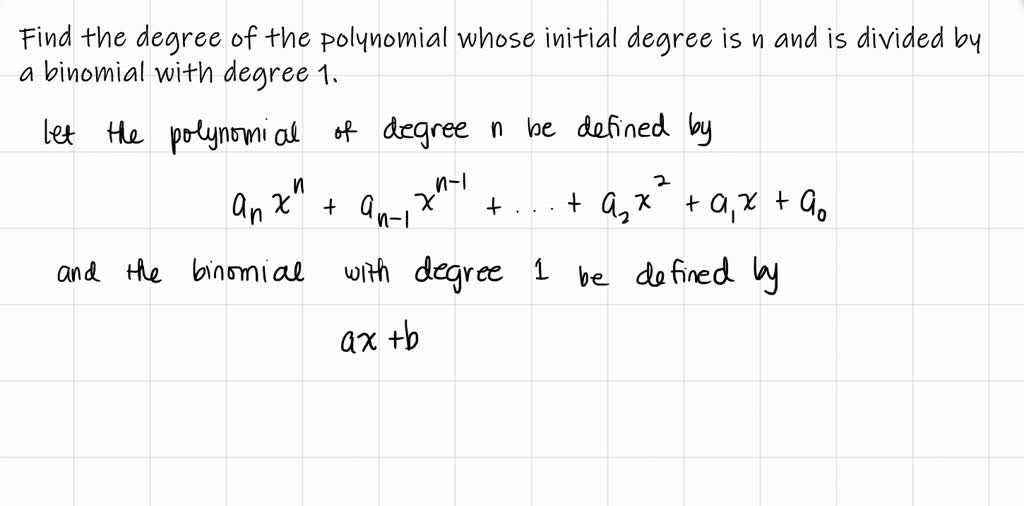 Find the degree of the polynomial whose initial degree is n and is divided by
a binomial with degree 1.
let the polynomial of degree n be defined by
aₙxⁿ + aₙ₋₁xⁿ⁻¹ + ... + a₂x² + a₁x + a₀
and the binomial with degree 1 be defined by
ax + b